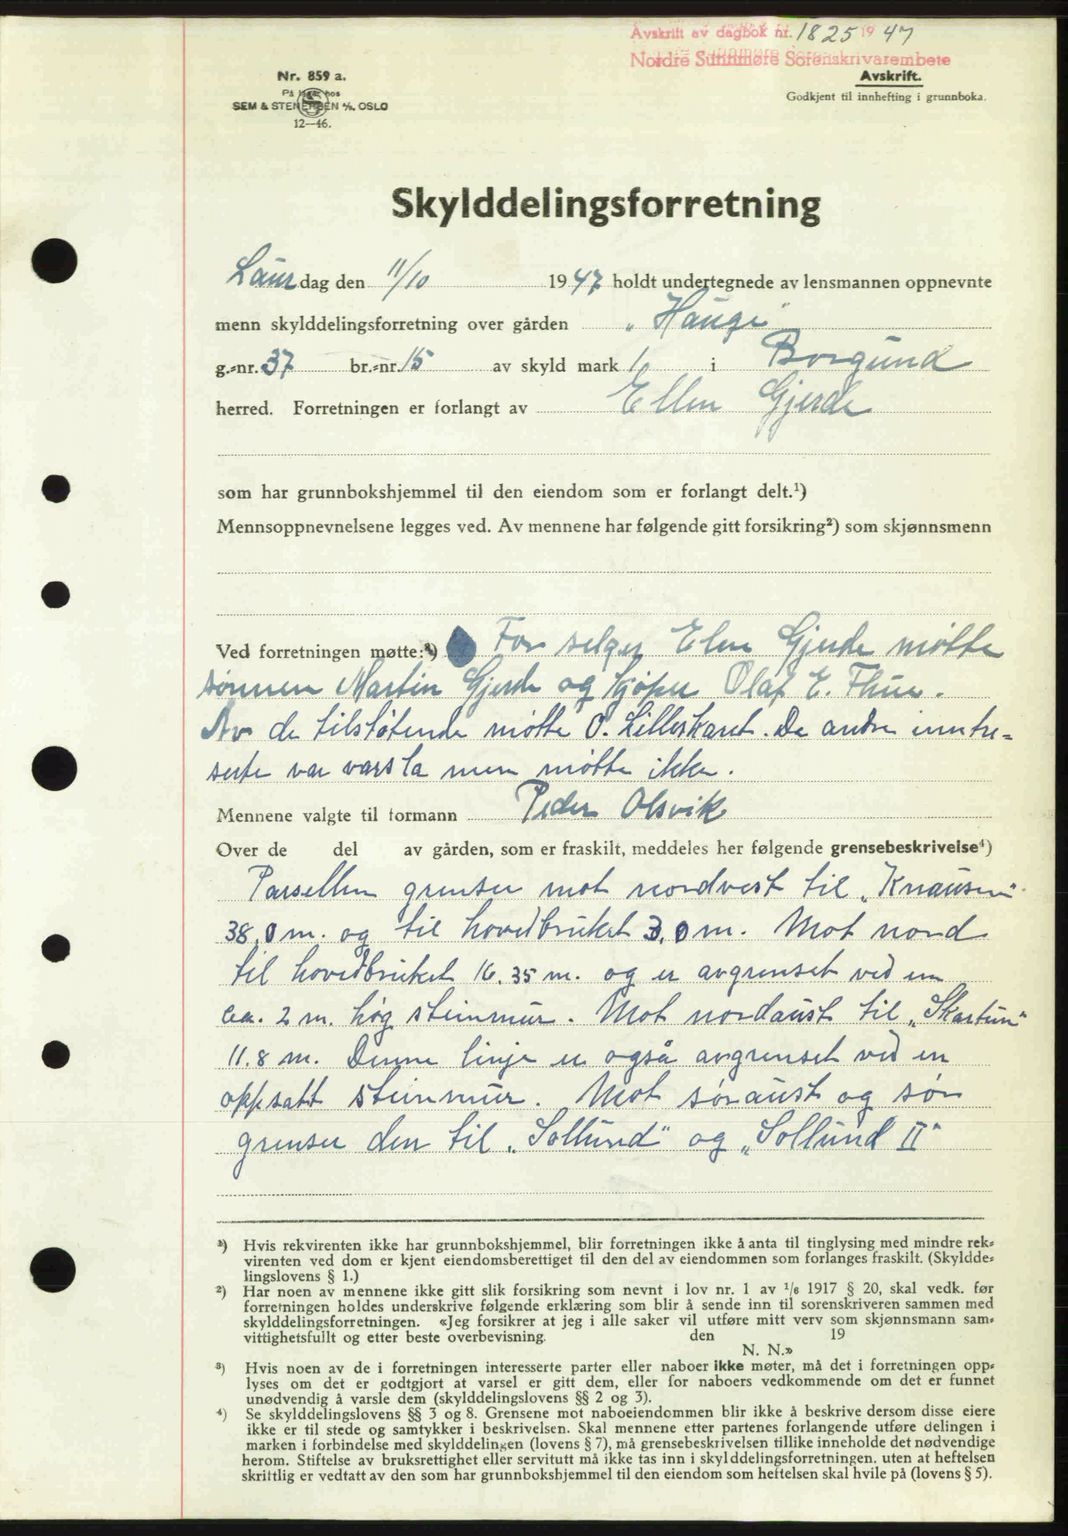 Avskrift av dagbok nr. 1825 1947
Nordre Sunnmøre Sorenskrivarembete
Nr. 859 a.
På lager hos
SEM & STENERSEN A/S. OSLO
12—46.
Avskrift.
Godkjent til innhefting i grunnboka.
Skylddelingsforretning
Laur dag den 11/10 1947 holdt undertegnede av lensmannen oppnevnte
menn skylddelingsforretning over gården „Haugi"
g.-nr. 37 br.-nr. 15 av skyld mark i Borgund
herred. Forretningen er forlangt av Ellen Gjerde
som har grunnbokshjemmel til den eiendom som er forlangt delt.¹)
Mennsoppnevnelsene legges ved. Av mennene har følgende gitt forsikring²) som skjønnsmenn
Ved forretningen møtte:³) For selger Elen Gjerde møtte
sønnen Martin Gjerde og kjøper Olaf E. Thue.
Av de tilstøtende møtte O. Lilleskaret. De andre inntre=
serte var varsla men møtte ikke.
Mennene valgte til formann Peder Olsvik
Over de del av gården, som er fraskilt, meddeles her følgende grensebeskrivelse⁴)
Parsellen grenser mot nordvest til „Knausen"
38,0 m. og til hovedbruket 3,0 m. Mot nord
til hovedbruket 16.35 m. og er avgrenset ved en
ca. 2 m. høg steinmur. Mot nordaust til „Skartun"
11.8 m. Denne linje er også avgrenset ved en
oppsatt steinmur. Mot søraust og sør
grenser den til „Sollund" og „Sollund II"
¹) Hvis rekvirenten ikke har grunnbokshjemmel, blir forretningen ikke å anta til tinglysing med mindre rek-
virenten ved dom er kjent eiendomsberettiget til den del av eiendommen som forlanges fraskilt. (Skyldde-
lingslovens § 1.)
²) Har noen av mennene ikke gitt slik forsikring som nevnt i lov nr. 1 av 1/6 1917 § 20, skal vedk. før
forretningen holdes underskrive følgende erklæring som blir å sende inn til sorenskriveren sammen med
skylddelingsforretningen. «Jeg forsikrer at jeg i alle saker vil utføre mitt verv som skjønnsmann sam-
vittighetsfullt og etter beste overbevisning. den 19
N. N.»
³) Hvis noen av de i forretningen interesserte parter eller naboer ikke møter, må det i forretningen opp-
lyses om det er godtgjort at varsel er gitt dem, eller for naboers vedkommende om det er funnet
unødvendig å varsle dem (skylddelingslovens §§ 2 og 3).
⁴) Se skylddelingslovens §§ 3 og 8. Grensene mot naboeiendommen blir ikke å beskrive dersom disse eiere
ikke er til stede og samtykker i beskrivelsen. Skal mennene etter partenes forlangende utføre delingen i
marken i forbindelse med skylddelingen (lovens § 7), må grensebeskrivelsen tillike inneholde det nødvendige
herom. Stiftelse av bruksrettighet eller servitutt må ikke tas inn i skylddelingsforretningen, uten at heftelsen
skriftlig er vedtatt av den som har grunnbokshjemmel til den eiendom som heftelsen skal hvile på (lovens § 5).